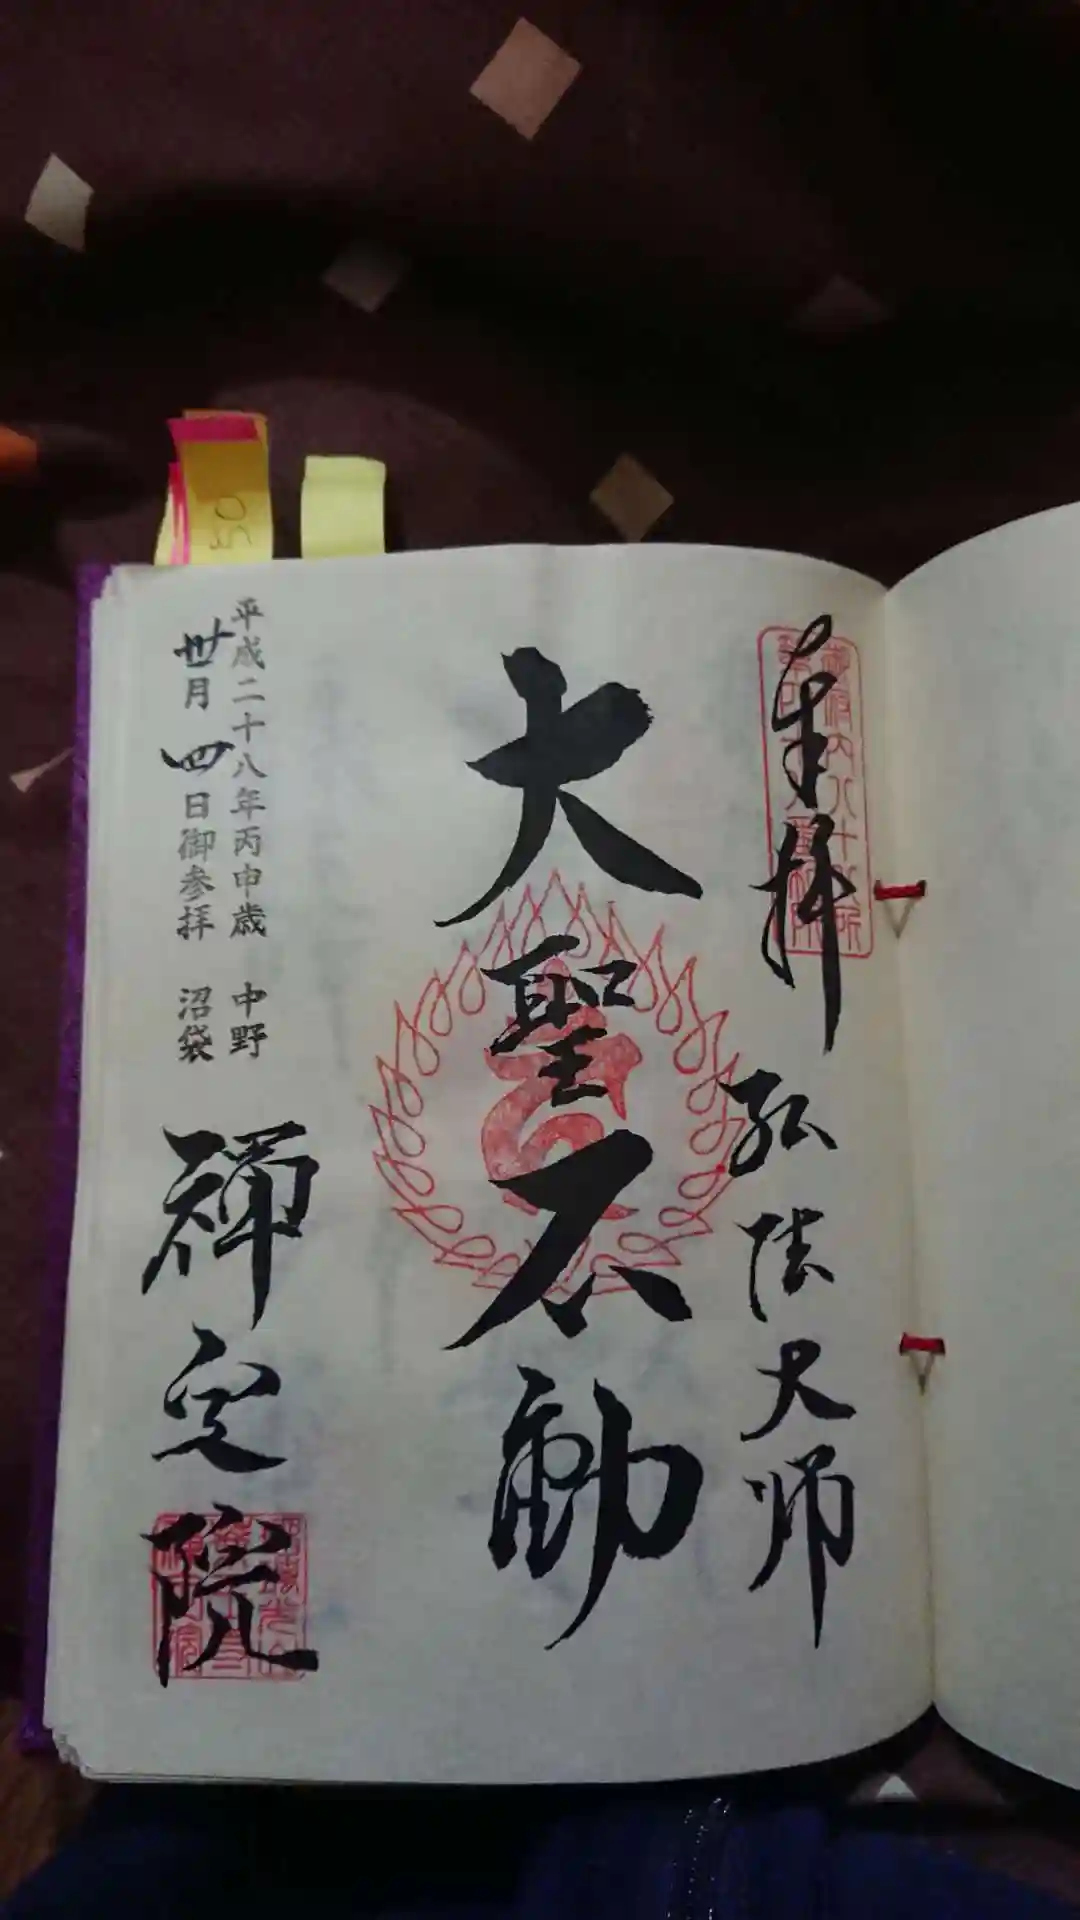 奉拝 弘法大師
大聖不動
平成二十八年丙申歳 中野
卅月四日御参拝 沼袋
禅定院